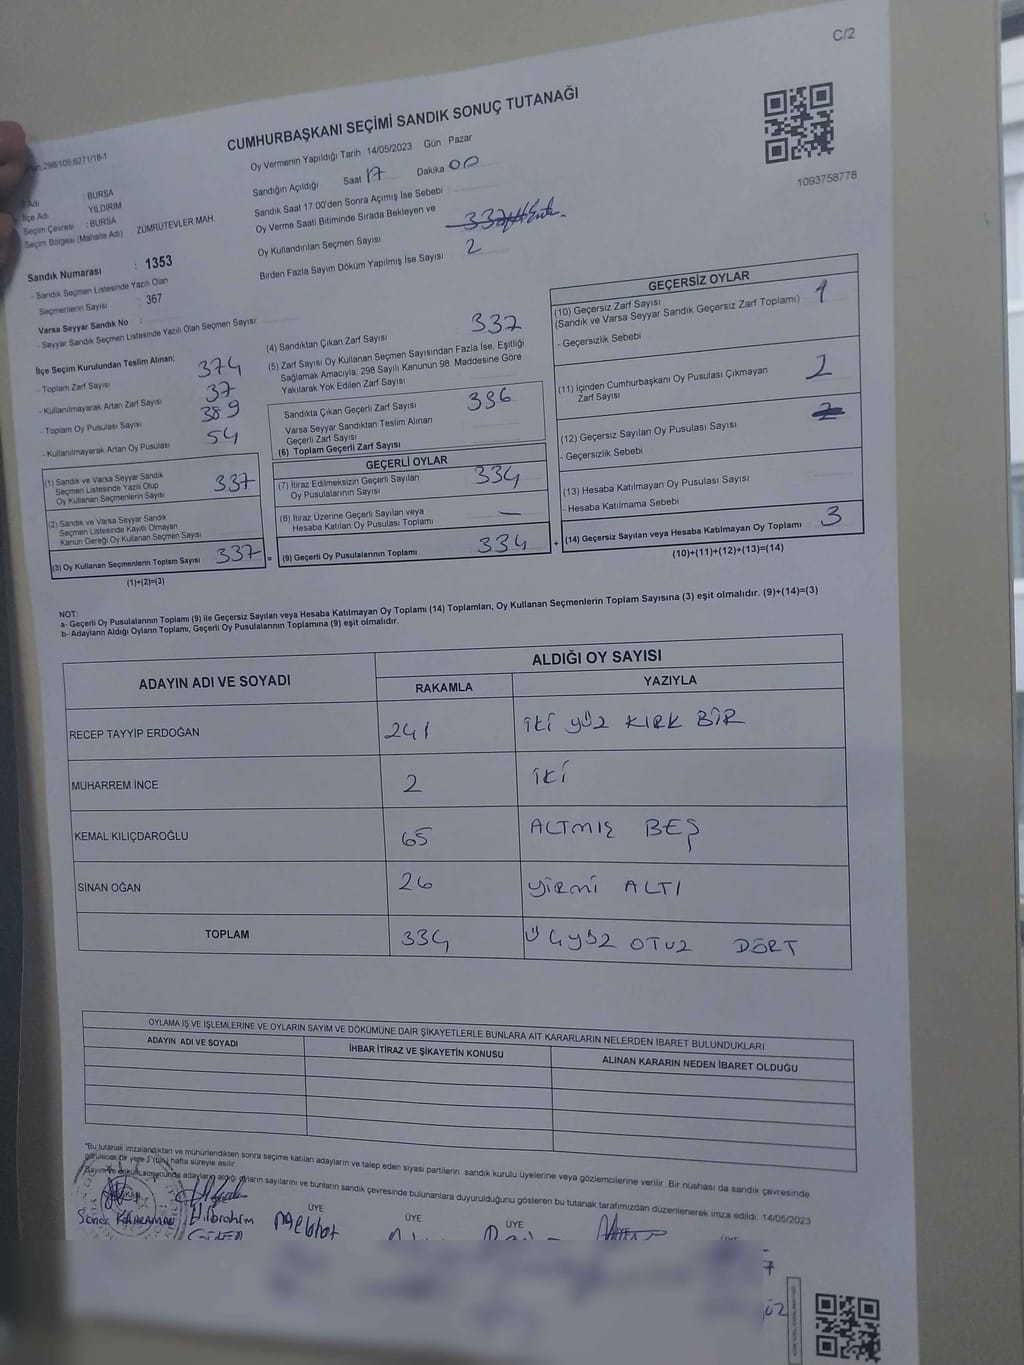 C/2
CUMHURBAŞKANI SEÇİMİ SANDIK SONUÇ TUTANAĞI
1093758778
298/105.6271/18-1
Adı : BURSA
İlçe Adı YILDIRIM
Seçim Çevresi : BURSA
Seçim Bölgesi (Mahalle Adı) ZÜMRÜTEVLER MAH.
Sandık Numarası : 1353
- Sandık Seçmen Listesinde Yazılı Olan
Seçmenlerin Sayısı : 367
Varsa Seyyar Sandık No :
- Seyyar Sandık Seçmen Listesinde Yazılı Olan Seçmen Sayısı
Oy Vermenin Yapıldığı Tarih 14/05/2023 Gün Pazar
Sandığın Açıldığı Saat 17 Dakika 00
Sandık Saat 17.00'den Sonra Açımış İse Sebebi
Oy Verme Saati Bitiminde Sırada Bekleyen ve
Oy Kullandırılan Seçmen Sayısı
Birden Fazla Sayım Döküm Yapılmış İse Sayısı 2
İlçe Seçim Kurulundan Teslim Alınan;
- Toplam Zarf Sayısı 374
- Kullanılmayarak Artan Zarf Sayısı 37
- Toplam Oy Pusulası Sayısı 389
- Kullanılmayarak Artan Oy Pusulası 54
(1) Sandık ve Varsa Seyyar Sandık
Seçmen Listesinde Yazılı Olup
Oy Kullanan Seçmenlerin Sayısı 337
(2) Sandık ve Varsa Seyyar Sandık
Seçmen Listesinde Kayıtlı Olmayan
Kanun Gereği Oy Kullanan Seçmen Sayısı
(3) Oy Kullanan Seçmenlerin Toplam Sayısı 337 =
(1)+(2)=(3)
(4) Sandıktan Çıkan Zarf Sayısı 337
(5) Zarf Sayısı Oy Kullanan Seçmen Sayısından Fazla İse, Eşitliği
Sağlamak Amacıyla, 298 Sayılı Kanunun 98. Maddesine Göre
Yakılarak Yok Edilen Zarf Sayısı
Sandıkta Çıkan Geçerli Zarf Sayısı 336
Varsa Seyyar Sandıktan Teslim Alınan
Geçerli Zarf Sayısı
(6) Toplam Geçerli Zarf Sayısı
GEÇERLİ OYLAR
(7) İtiraz Edilmeksizin Geçerli Sayılan
Oy Pusulalarının Sayısı 334
(8) İtiraz Üzerine Geçerli Sayılan veya
Hesaba Katılan Oy Pusulası Toplamı —
(9) Geçerli Oy Pusulalarının Toplamı 334 +
GEÇERSİZ OYLAR
(10) Geçersiz Zarf Sayısı 1
(Sandık ve Varsa Seyyar Sandık Geçersiz Zarf Toplamı)
- Geçersizlik Sebebi
(11) İçinden Cumhurbaşkanı Oy Pusulası Çıkmayan
Zarf Sayısı 2
(12) Geçersiz Sayılan Oy Pusulası Sayısı
- Geçersizlik Sebebi
(13) Hesaba Katılmayan Oy Pusulası Sayısı
- Hesaba Katılmama Sebebi
(14) Geçersiz Sayılan veya Hesaba Katılmayan Oy Toplamı 3
(10)+(11)+(12)+(13)=(14)
NOT:
a- Geçerli Oy Pusulalarının Toplamı (9) ile Geçersiz Sayılan veya Hesaba Katılmayan Oy Toplamı (14) Toplamları, Oy Kullanan Seçmenlerin Toplam Sayısına (3) eşit olmalıdır. (9)+(14)=(3)
b- Adayların Aldığı Oyların Toplamı, Geçerli Oy Pusulalarının Toplamına (9) eşit olmalıdır.
ADAYIN ADI VE SOYADI ALDIĞI OY SAYISI
RAKAMLA YAZIYLA
RECEP TAYYİP ERDOĞAN 241 iki yüz KIRK BİR
MUHARREM İNCE 2 iki
KEMAL KILIÇDAROĞLU 65 ALTMIŞ BEŞ
SİNAN OĞAN 26 yirmi ALTI
TOPLAM 334 üçyüz OTUZ DÖRT
OYLAMA İŞ VE İŞLEMLERİNE VE OYLARIN SAYIM VE DÖKÜMÜNE DAİR ŞİKAYETLERLE BUNLARA AİT KARARLARIN NELERDEN İBARET BULUNDUKLARI
ADAYIN ADI VE SOYADI İHBAR İTİRAZ VE ŞİKAYETİN KONUSU ALINAN KARARIN NEDEN İBARET OLDUĞU
*Bu tutanak imzalandıktan ve mühürlendikten sonra seçime katılan adayların ve talep eden siyasi partilerin sandık kurulu üyelerine veya gözlemcilerine verilir. Bir nüshası da sandık çevresinde
görülecek bir yere 1 (bir) hafta süreyle asılır.
Sayım ve döküm sonucunda adayların aldığı oyların sayılarını ve bunların sandık çevresinde bulunanlara duyurulduğunu gösteren bu tutanak tarafımızdan düzenlenerek imza edildi. 14/05/2023
ÜYE ÜYE ÜYE
Soner KARAMAN H.İbrahim